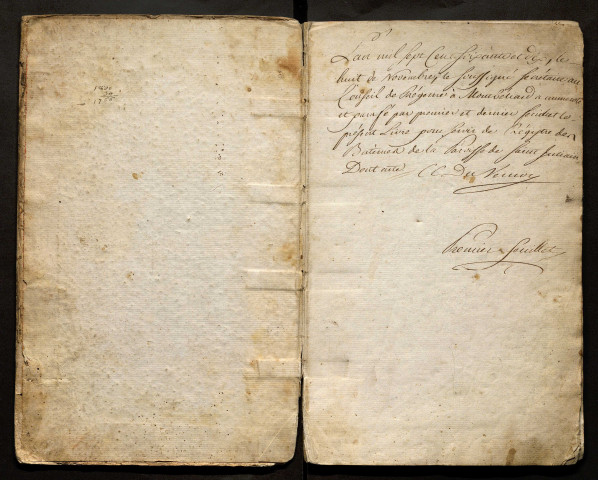 L'an mil sept Cent soixante et dix, le
huit de Novembre, le soussigné secretaire au
Conseil de Régence à Montbéliard a numeroté
et parafé par premier et dernier feuillet le
présent Livre pour servir de Régitre des
Batêmes de la Paroisse de Saint Julien
Dont acte
Premier feuillet